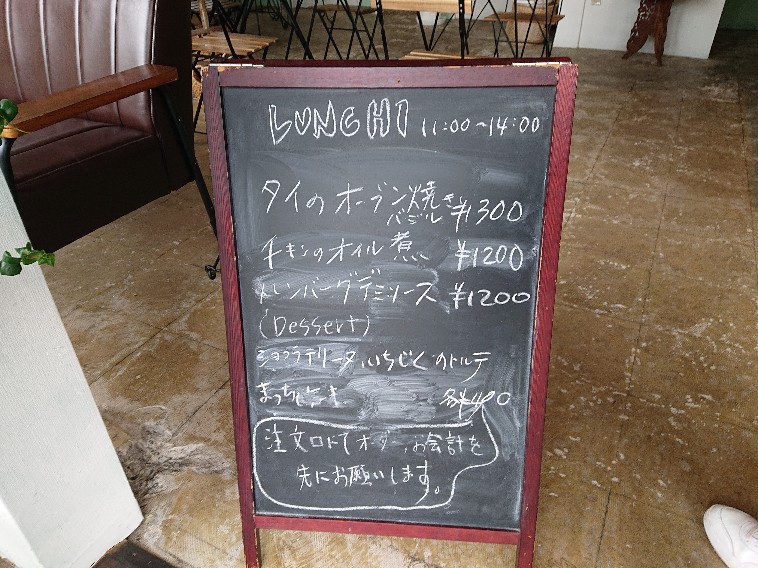 LUNCH! 11:00~14:00
タイのオーブン焼き
バジル ¥1300
チキンのオイル煮 ¥1200
ハンバーグデミソース ¥1200
(Dessert)
ショコラテリーヌ、いちじくのトルテ
まっちゃ 各¥490
注文口にてオーダー、お会計を
先にお願いします。